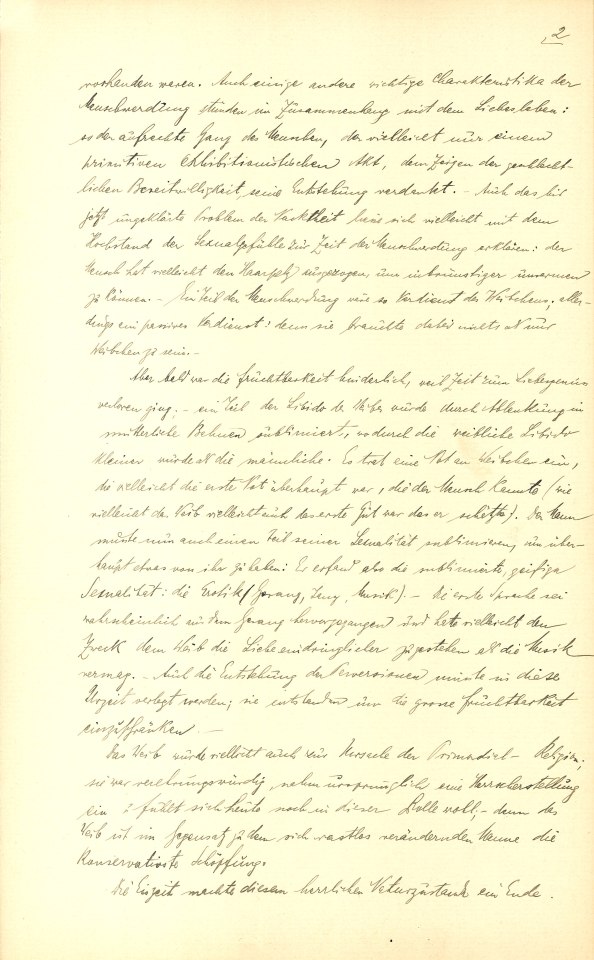 2
vorhanden waren. Auch einige andere wichtige Charakteristika der
Menschwerdung stünden im Zusammenhang mit dem Liebesleben:
so der aufrechte Gang des Menschen, der vielleicht nur einem
primitiven exhibitionistischen Akt, dem Zeigen der geschlecht-
lichen Bereitwilligkeit, seine Entstehung verdankt. - Auch das bis
jetzt ungeklärte Problem der Nacktheit liesse sich vielleicht mit dem
Hochstand der Sexualgefühle zur Zeit der Menschwerdung erklären: der
Mensch hat vielleicht den Haarpelz ausgezogen, um inbrünstiger umarmen
zu können. - Ein Teil der Menschwerdung wäre so Verdienst des Weibchens; aller-
dings ein passives Verdienst: denn sie brauchte dabei nichts als nur
Weibchen zu sein. -
Aber bald war die Fruchtbarkeit hinderlich, weil Zeit zum Liebesgenuss
verloren ging. - ein Teil der Libido des Weibes wurde durch Ablenkung in
mütterliche Bahnen sublimiert, wodurch die weibliche Libido
kleiner wurde als die männliche. Es trat eine Not an Weibchen ein,
die vielleicht die erste Not überhaupt war, die der Mensch kannte (wie
vielleicht das Weib vielleicht auch das erste Gut war das er schätzte). Der Mann
musste nun auch einen Teil seiner Sexualität sublimieren, um über-
haupt etwas von ihr zu haben: Er erfand also die sublimierte, geistige
Sexualität: die Erotik (Gesang, Tanz, Musik). - Die erste Sprache sei
wahrscheinlich aus dem Gesang hervorgegangen und hatte vielleicht den
Zweck dem Weib die Liebe eindringlicher zu gestehen als die Musik
vermag. - Auch die Entstehung der Perversionen müsste in diese
Urzeit verlegt werden; sie entstanden um die grosse Fruchtbarkeit
einzuschränken. -
Das Weib wurde vielleicht auch zur Ursache der Primordial-Religion;
sie war verehrungswürdig, nahm ursprünglich eine Herrscherstellung
ein u. fühlt sich heute noch in dieser Rolle wohl, - denn das
Weib ist im Gegensatz zu dem sich rastlos verändernden Manne die
konservativste Schöpfung.
Die Eiszeit machte diesem herrlichen Naturzustande ein Ende.